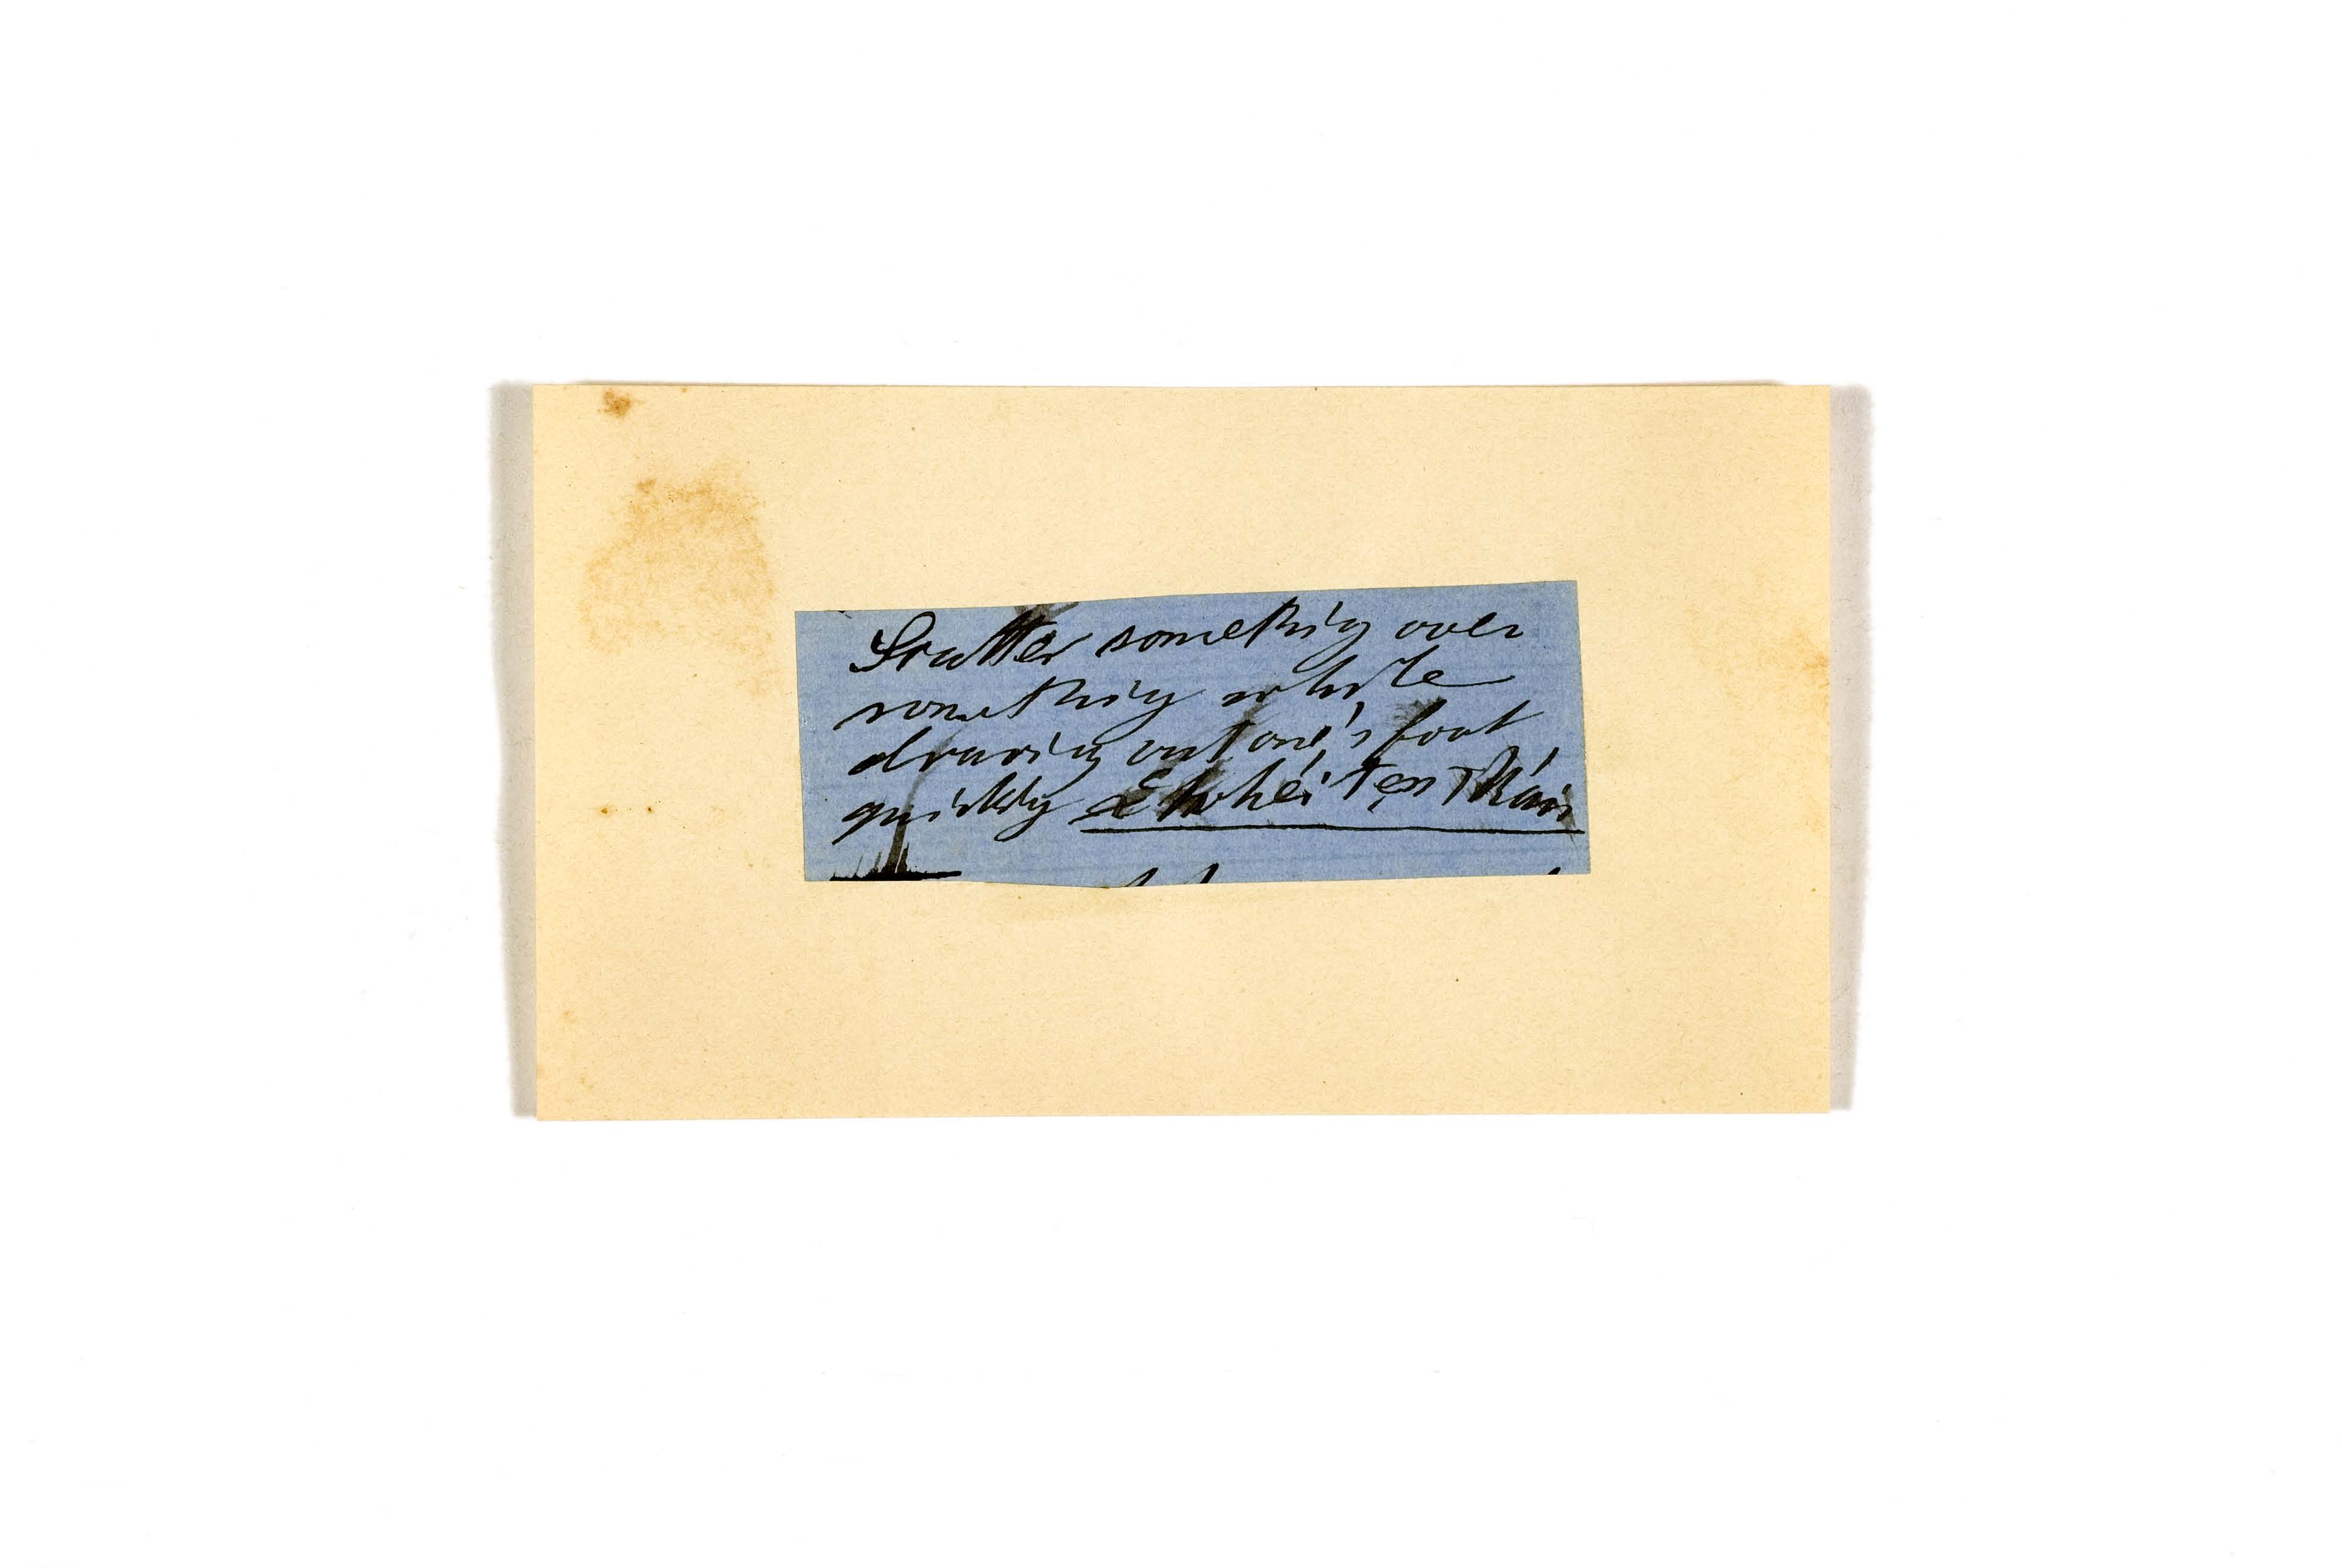 Scatter something over
something while
drawing out one's foot
quickly